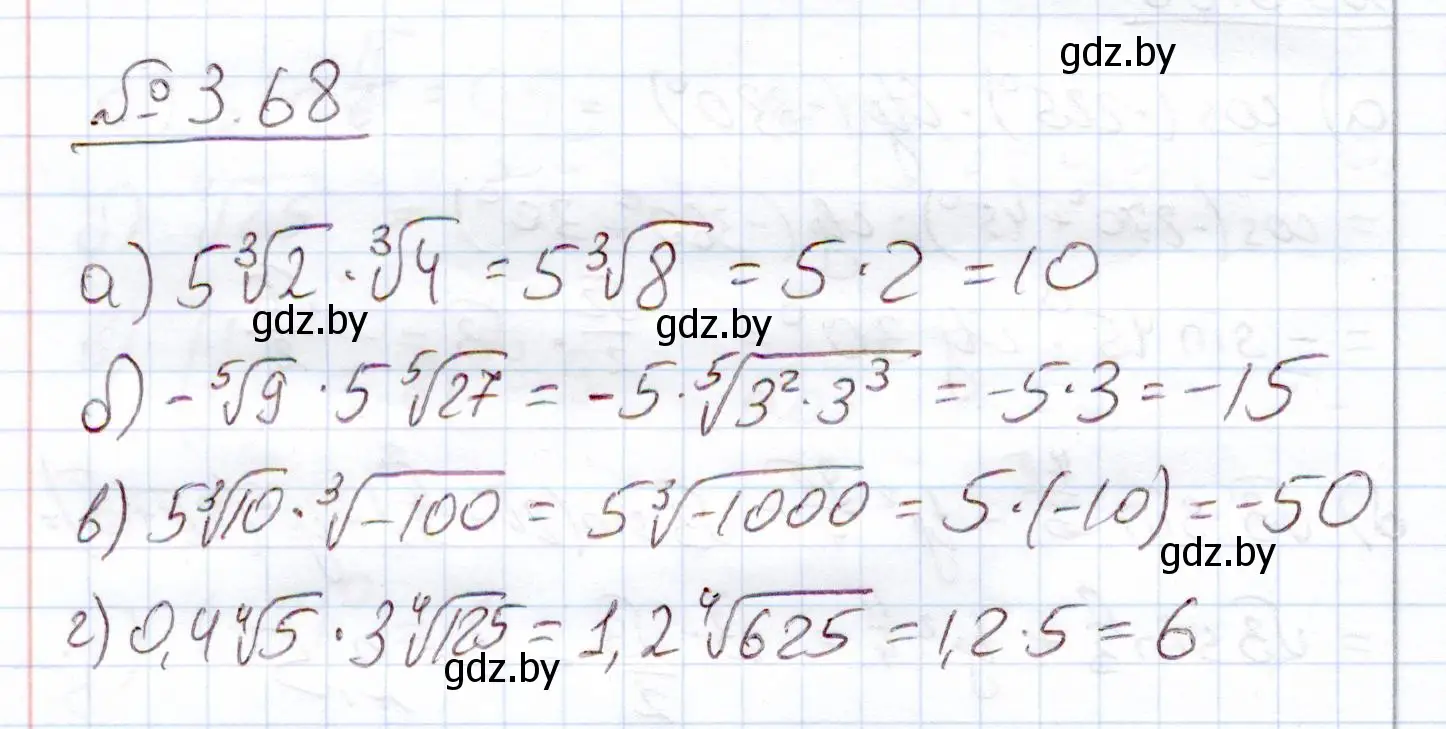 gdz.by
№ 3.68
а) 5∛2 · ∛4 = 5∛8 = 5·2 = 10
gdz.by gdz.by
б) -⁵√9 · 5 ⁵√27 = -5·⁵√(3²·3³) = -5·3 = -15
в) 5∛10 · ∛(-100) = 5∛(-1000) = 5·(-10) = -50
gdz.by
г) 0,4 ⁴√5 · 3 ⁴√125 = 1,2 ⁴√625 = 1,2·5 = 6
gdz.by